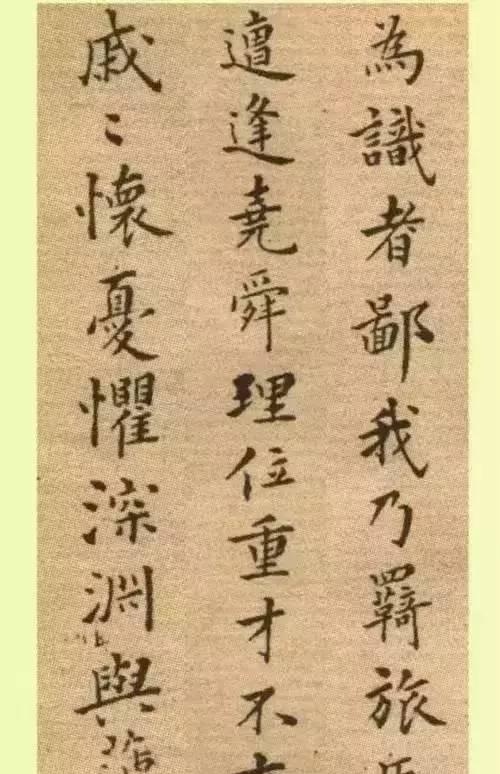 為識者鄙我乃羇旅
遭逢堯舜理位重才不
戚〻懷憂懼深淵與